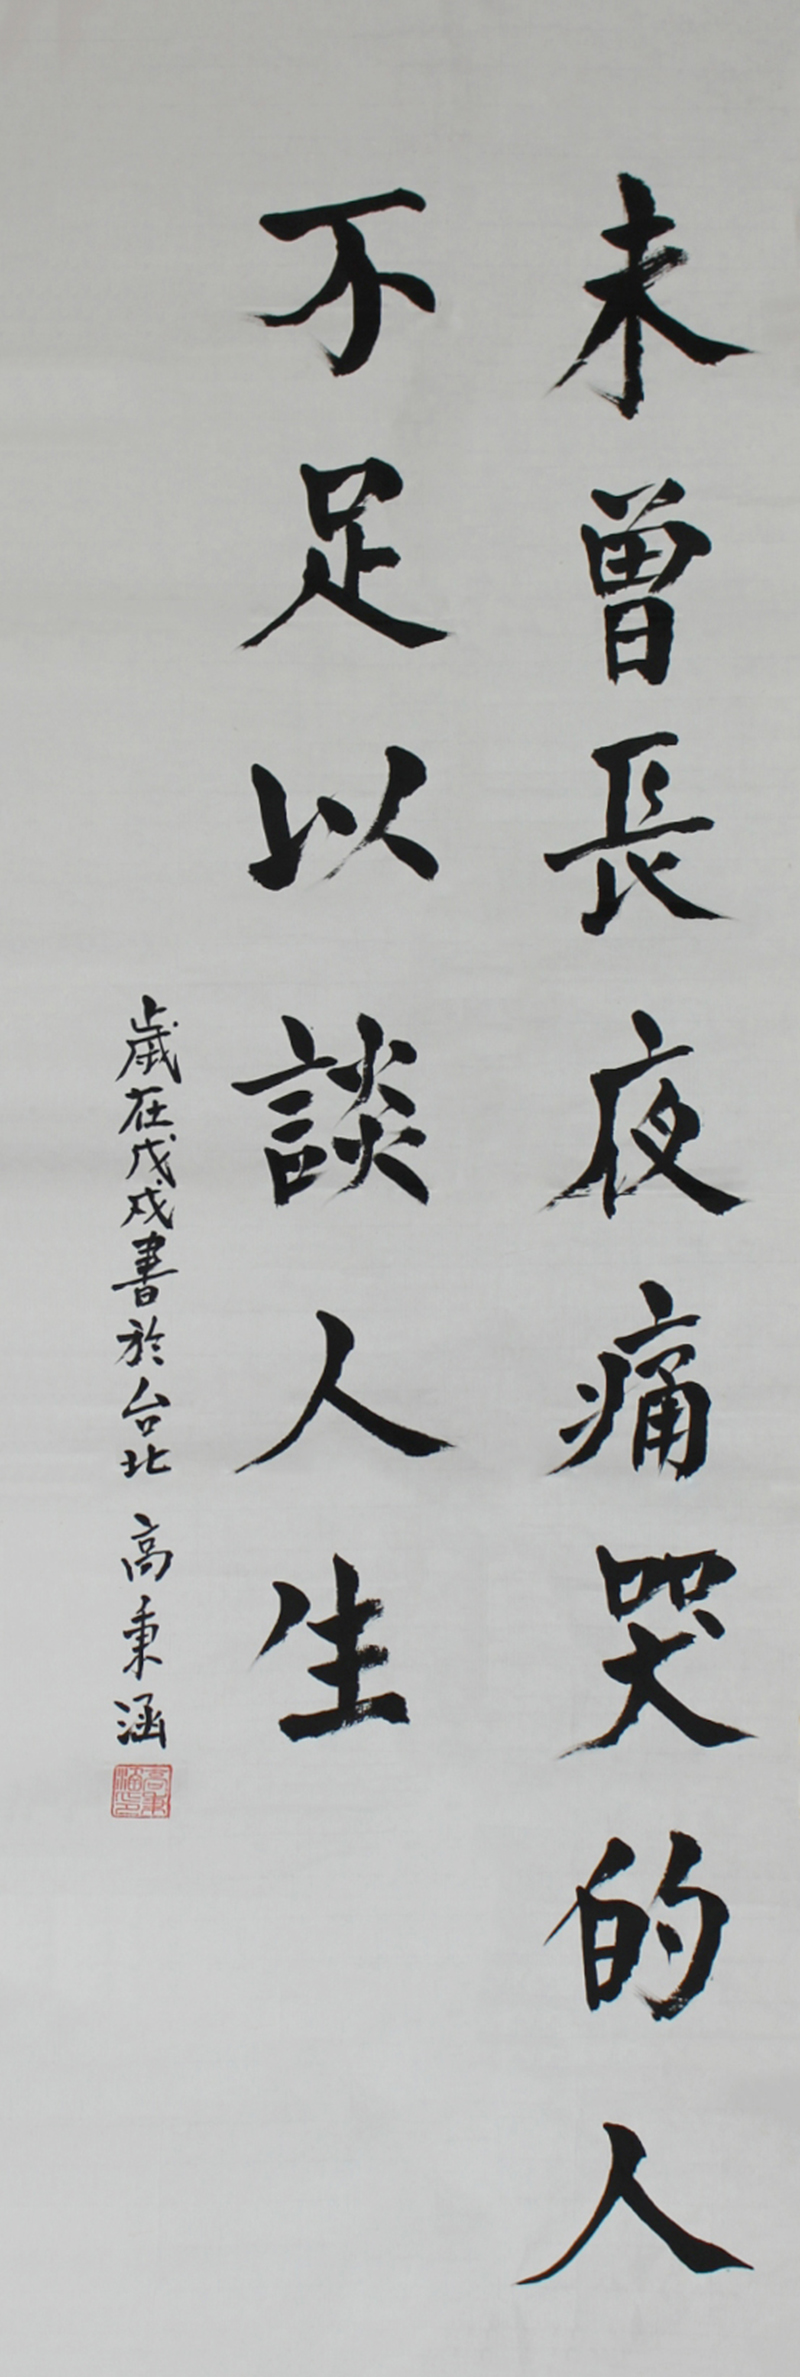 未曾長夜痛哭的人
不足以談人生
歲在戊戌書於台北 高秉涵
高秉涵印